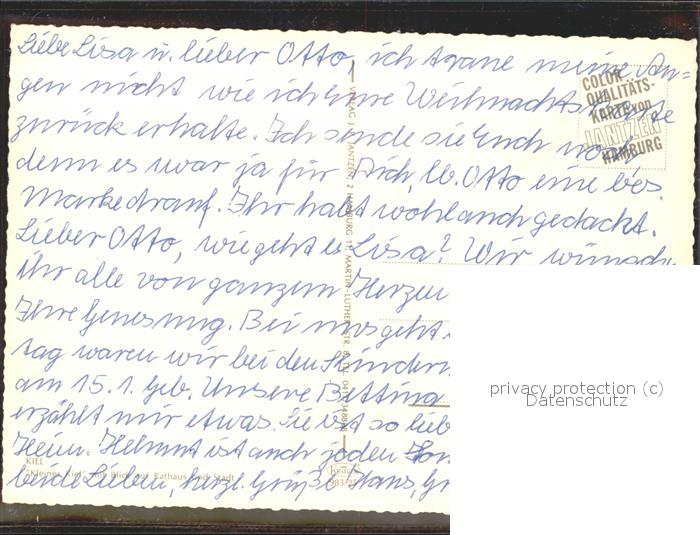 Liebe Lisa u. lieber Otto, ich traue meine Au-
gen nicht wie ich eine Weihnachtskarte
zurück erhalte. Ich sende sie Euch noch
denn es war ja für Dich, lb. Otto eine bes.
Marke drauf. Ihr habt wohl auch gedacht.
Lieber Otto, wie geht es Lisa? Wir wünsch
ihr alle von ganzem Herzen
Ihre Genesung. Bei uns geht
tag waren wir bei den Kindern
am 15.1. Geb. Unsere Bettina
erzählt mir etwas. Sie ist so lieb
Heim. Helmut ist auch jeden
beide Lieben, herzl. Grüße Hans,
COLOR
QUALITÄTS-
KARTE von
JANTZEN
HAMBURG
VERLAG J. JANTZEN, 2 HAMBURG 11, MARTIN-LUTHER-STR.
KIEL
"Kleiner Kiel" mit Blick auf Rathaus und Stadt
privacy protection (c)
Datenschutz